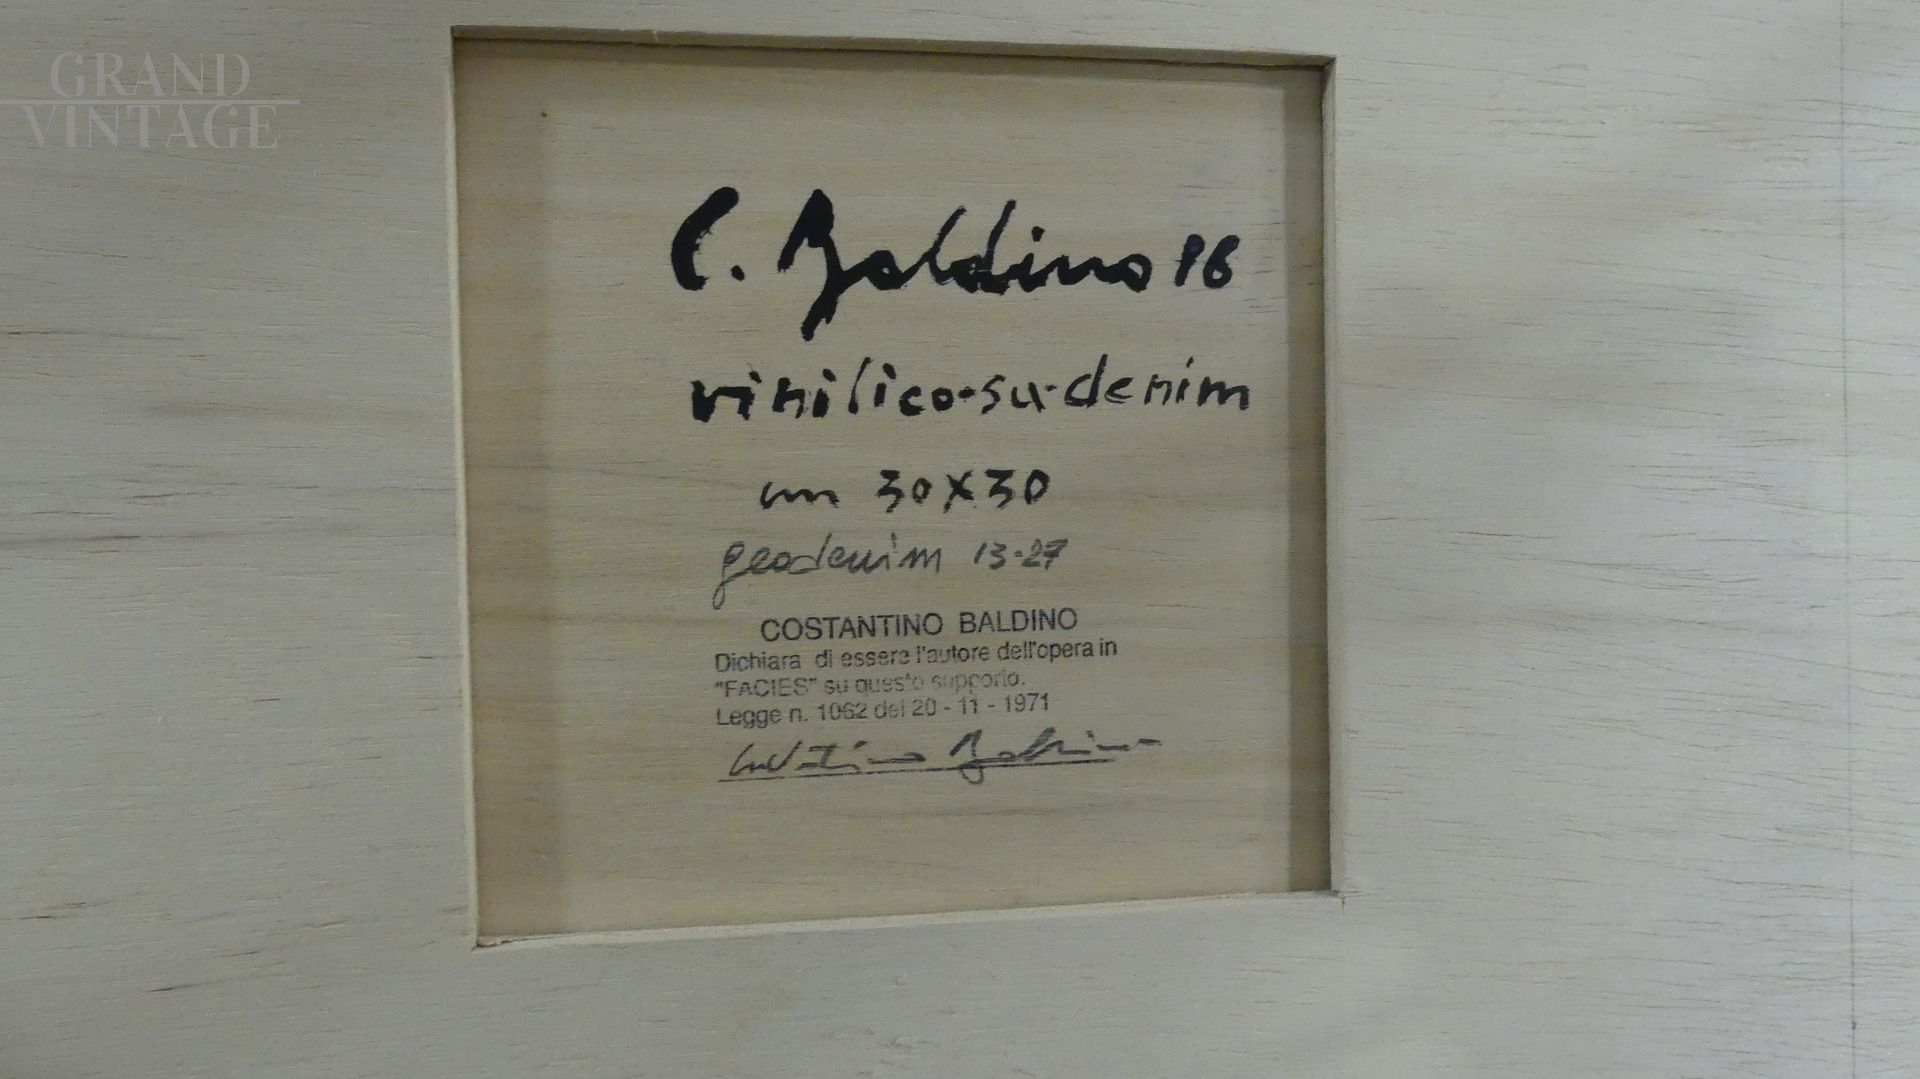 GRAND
VINTAGE
C. Baldino 16
vinilico-su-denim
cm 30x30
geodenim 13-27
COSTANTINO BALDINO
Dichiara di essere l'autore dell'opera in
"FACIES" su questo supporto.
Legge n. 1062 del 20 - 11 - 1971
Costantino Baldino